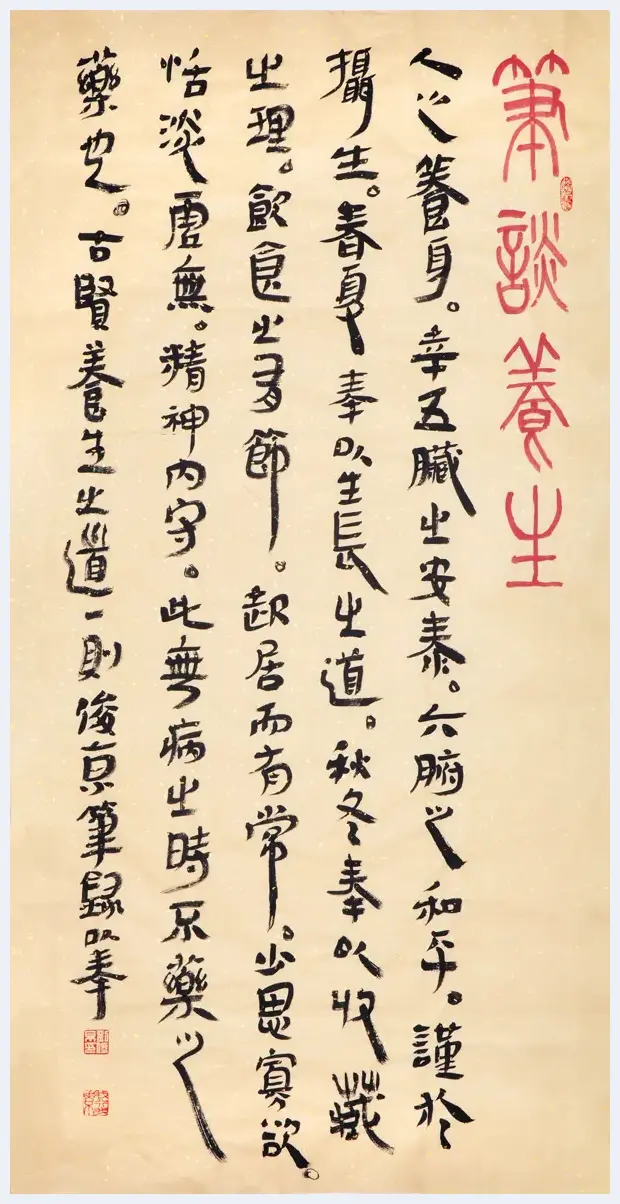 筆談養生
人之養身。幸五臟之安泰。六腑之和平。謹於
攝生。春夏奉以生長之道。秋冬奉以收藏
之理。飲食之有節。起居而有常。少思寡欲。
恬淡虛無。精神内守。此無病之時不藥之
藥也。古賢養生之道一則俊京筆錄以奉